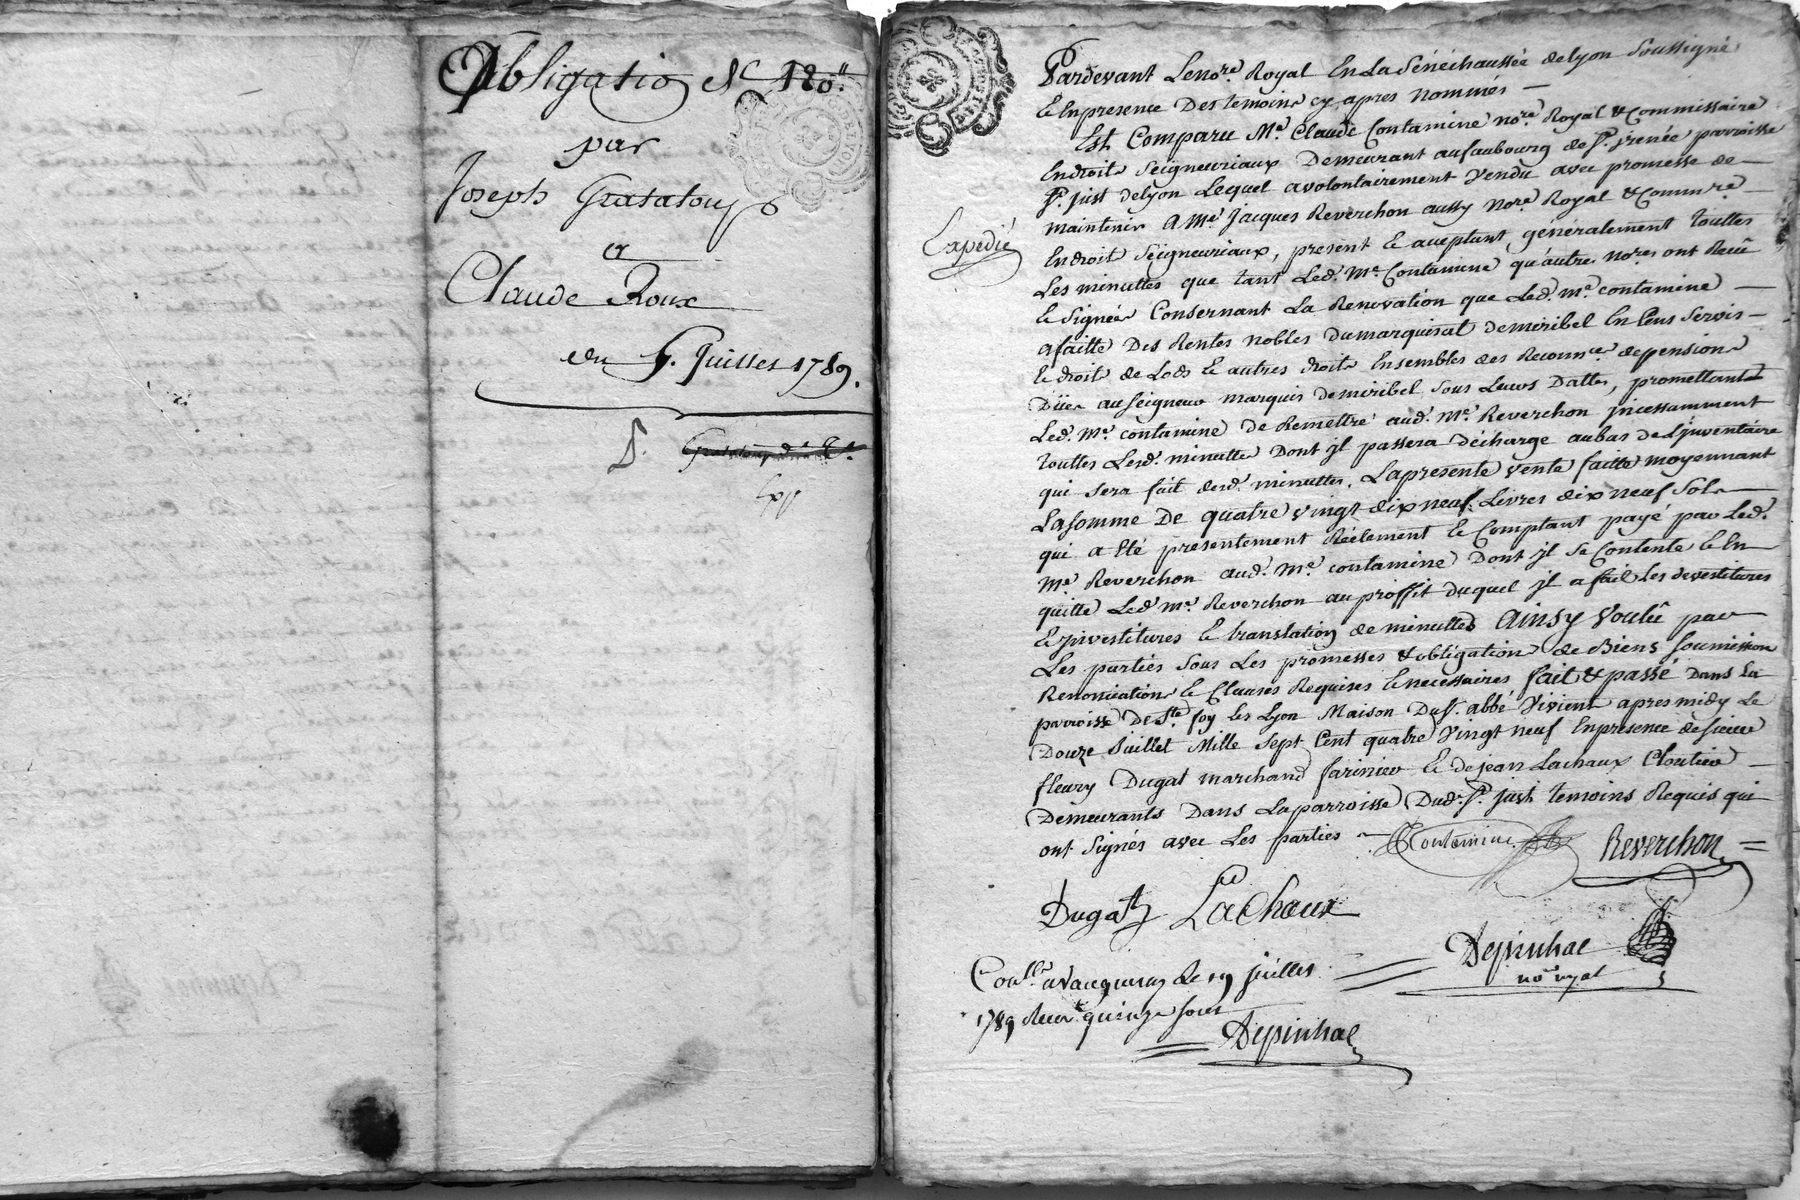 Obligatio 480ᵗᵗ
par
Joseph Gratalou
et
Claude Roux
du 5. Juillet 1789.
Expedié
Pardevant Le noʳᵉ Royal En La Sénéchaussée de Lyon Soussigné
& En presence Des temoins cy apres Nommés
Est Comparu Mᵉ Claude Contamine noʳᵉ Royal & Commissaire
En droits Seigneuriaux Demeurant au faubourg de Sᵗ. jrenée parroisse
Sᵗ. just de Lyon Lequel a volontairement Vendu avec promesse de
maintenir A Mᵉ jacques Reverchon aussy noʳᵉ Royal & Commʳᵉ
En droits Seigneuriaux, present & aceptant, généralement touttes
Les minuttes que tant Led. Mᵉ Contamine qu'autres noʳᵉˢ ont Reçû
& Signées Consernant La Renovation que Led. mᵉ contamine
a faitte Des Rentes nobles du marquisat de miribel En Cens Servis
& droits de Lods & autres droits Ensembles des Reconnᶜᵉˢ de pensions
Dües au Seigneur marquis de miribel Sous Leurs Dattes, promettant
Led. Mᵉ contamine De Remettre aud. Mᵉ Reverchon jncessamment
touttes Lesd. minuttes Dont jl passera décharge au bas de L'jnventaire
qui Sera fait desd. minuttes. La presente Vente faitte moyennant
La Somme De quatre Vingt dix neuf Livres dix neuf Sols
qui a Eté presentement Réélement & Comptant payé par Led.
Mᵉ Reverchon aud. Mᵉ contamine Dont jl Se Contente & En
quitte Led Mᵉ Reverchon au proffit duquel jl a fait Les devestitures
& jnvestitures & translation de minuttes Ainsy Voulû par
Les parties Sous Les promesses & obligations de Biens Soumission
Renonciations & Clauses Requises & necessaires fait & passé Dans La
parroisse De Sᵗᵉ foy les Lyon Maison Du Sʳ. abbé Vivient apres midy Le
Douze Juillet Mille Sept Cent quatre Vingt neuf En presence de Sieur
fleury Dugat marchand farinier & de jean Lachaux Cloutier
Demeurants Dans La parroisse Dud. Sᵗ. just temoins Requis qui
ont Signés avec Les parties Contamine Reverchon
Dugat Lachaux
Depinhac
noʳᵉ royal
Conˡˡᵉ a Vaugneray Le 19 juillet
1789 Recu quinze Sous
Depinhac